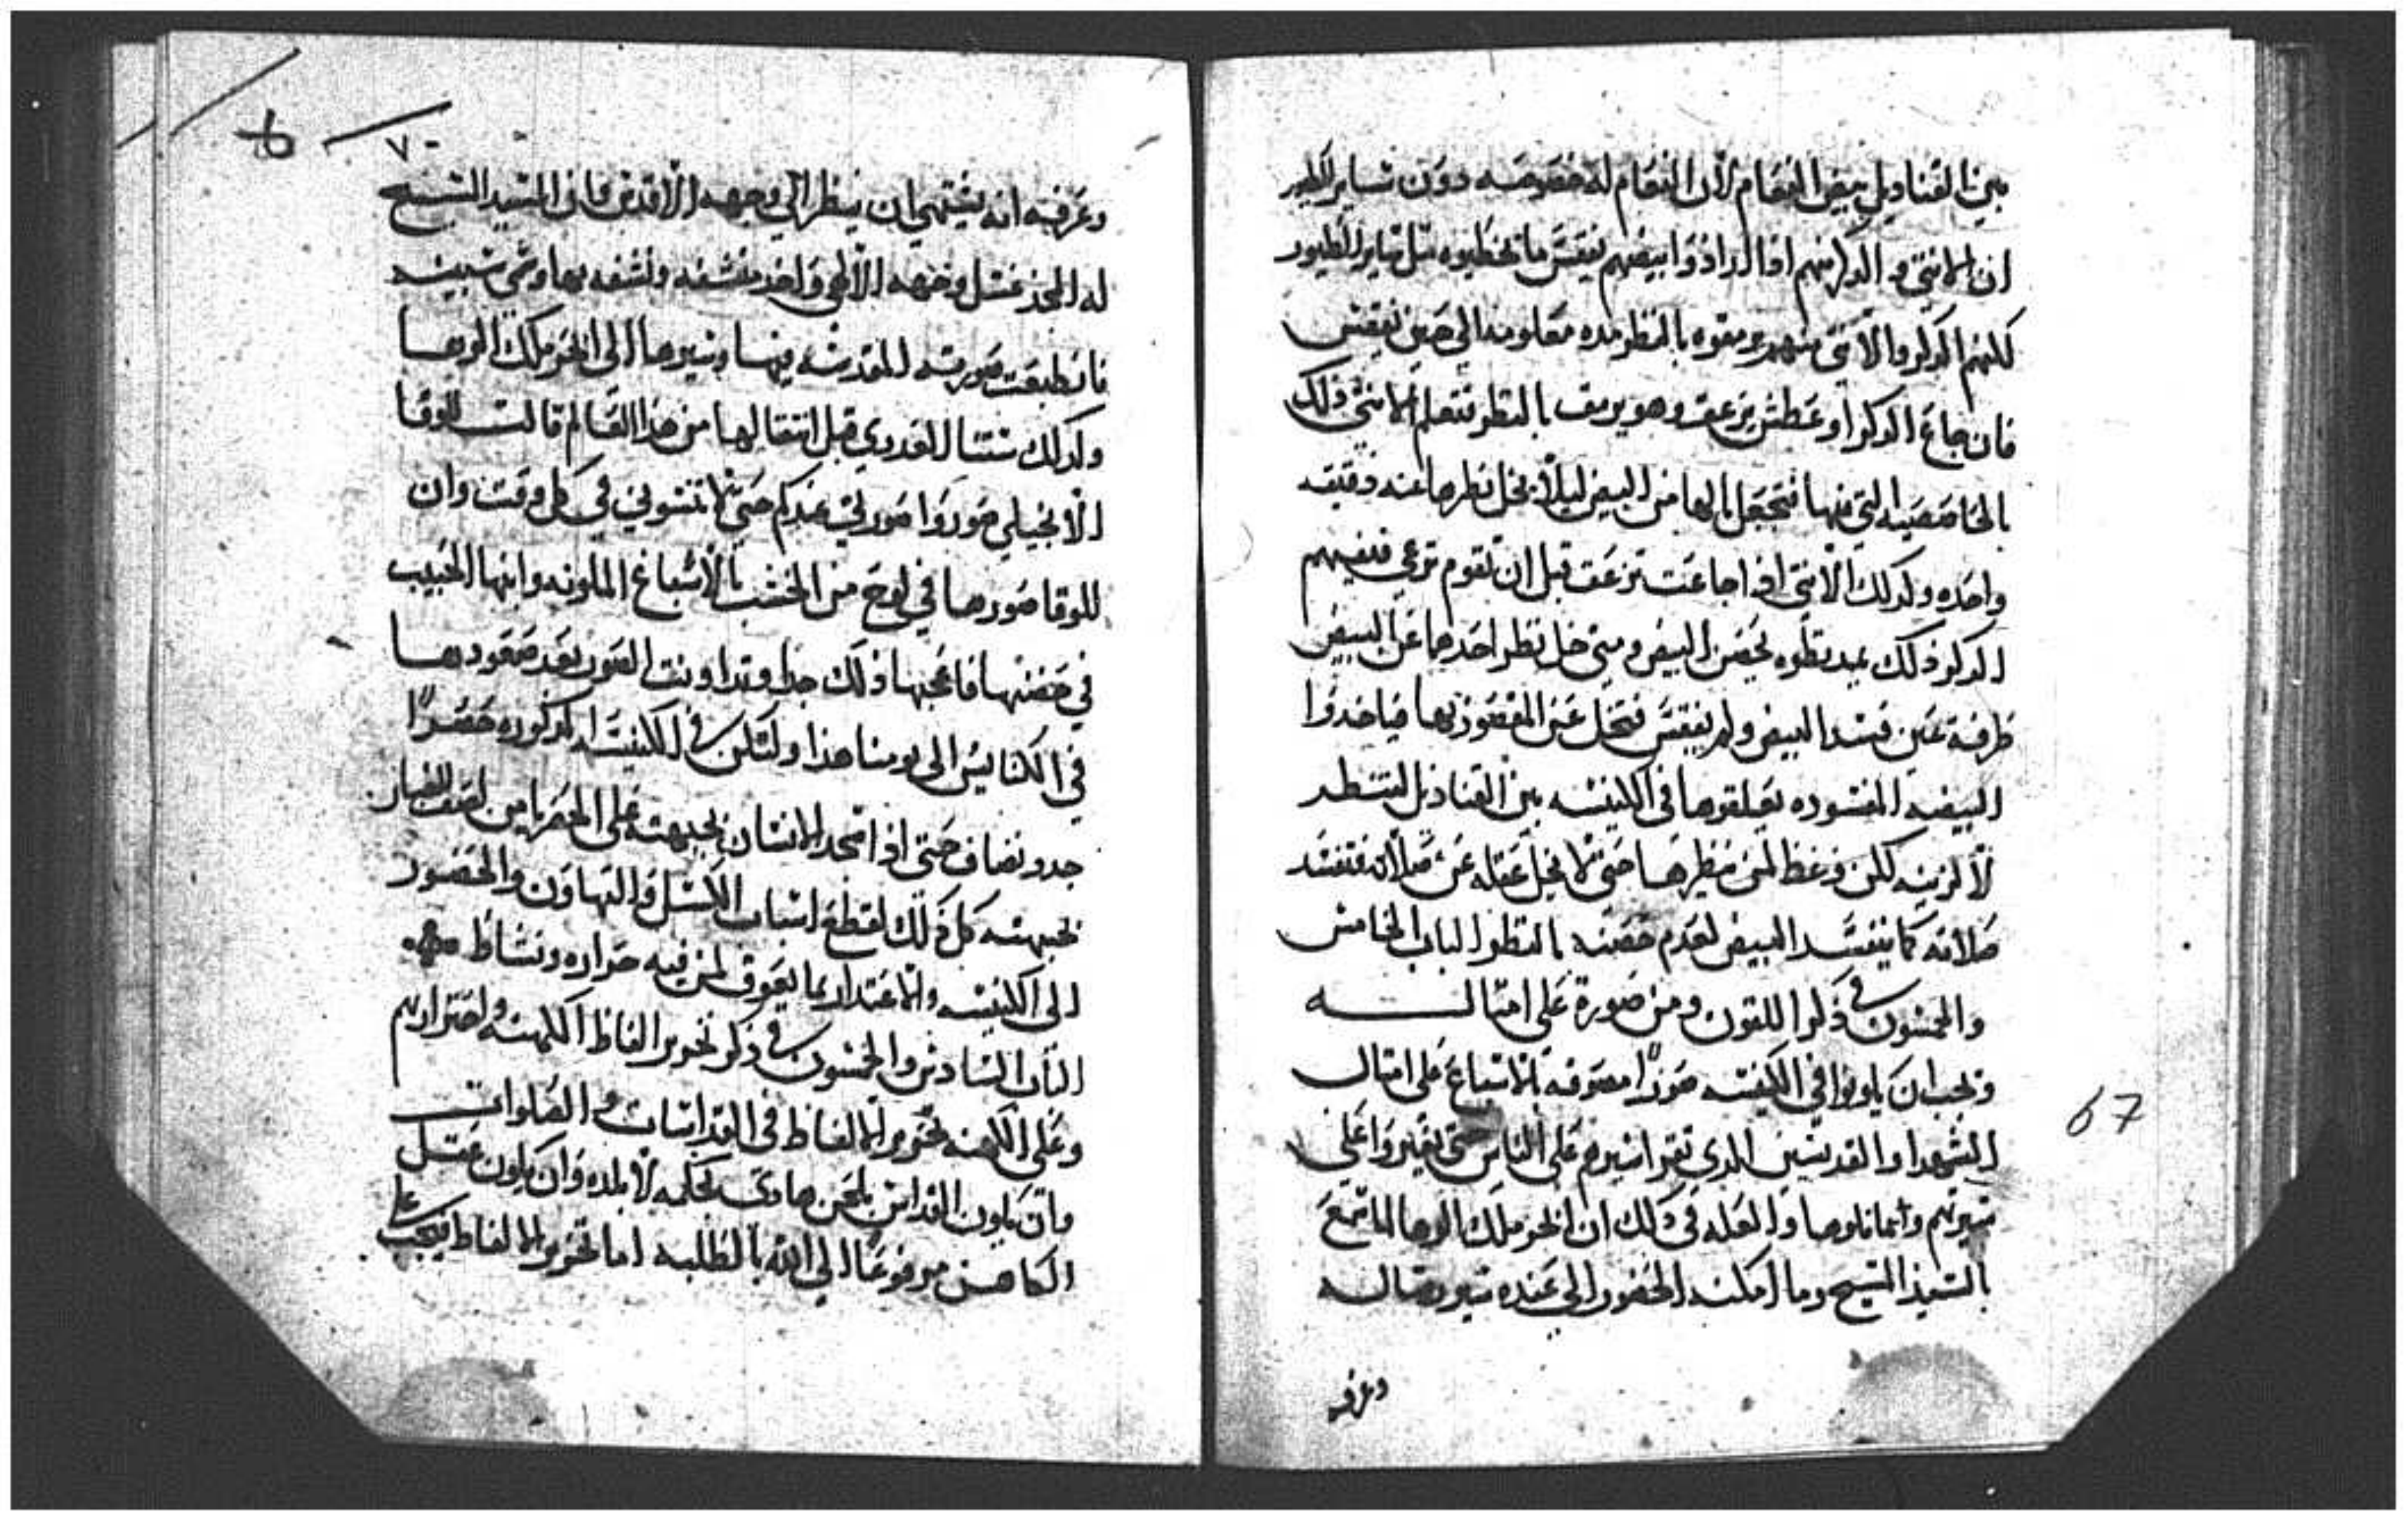 بين القناديل بيض النعام لأن النعام له خصوصه دون ساير الطير
ان الانتي والدكر منهم اذا ارادوا بيضهم يفقس ما يحضنوه مثل ساير الطيور
لكنهم الدكر والانتي منهم يرمقوه بالنظر مده معلومه الي حين يفقس
فان جاع الدكر او عطش يزعق وهو يرمق بالنظر فتعلم الانتي ذلك
بالخاصصيه التي فيها فتجعل بالها من البيض ليلا يخل نظرها عنه دقيقه
واحده وكدلك الانتي اذا جاعت تزعق قبل ان تقوم ترعي فيفهم
الدكر ذلك بيد نظره لحضن البيض ومتي خل نظر احدهما عن البيض
طرفة عين فسد البيض ولم يفقس فتخل عن المقصود بها فياخدوا
البيضه المفسوده يعلقوها في الكنيسه بين القناديل لتنظر
لا لزينه لكن وعظ لمن ينظرها حتي لا يخل عقله عن صلاته فتفسد
صلاته كما ينفسد البيض لعدم حضنه بالنظر الباب الخامس
والخمسون في ذكر اللقون ومن صوره علي امتاله
ويجب ان يكونوا في الكنيسه صورا مصوفه بالاسباغ علي امتال
الشهدا والقديسين الدي تقرا سيرهم علي الناس حتي يغيروا علي
سيرتهم واتمانلوها والعله في ذلك ان ابجر ملك الرها لما سمع
بالسيد المسيح وما امكنه الحضور الي عنده سير رساله
وعرفه
67
٧٠
وعرفيه انه يشتهي ان ينظر الي وجهه الاقدس فان السيد المسيح
له المجد غسل وجهه الالهي واخد منشفه ونشفه بها وهي سبينه
فانطبعت صورته المقدسه فيها وسيرها الي ابجر ملك الرها
وكدلك ستنا العدري قبل انتقالها من هذا العالم قالت للوقا
الانجيلي صوروا صورتي عندكم حتي لا تنسوني في كل وقت وان
للوقا صورها في لوح من الخشب بالاسباغ الملونه وابنها الحبيب
في حضنها فاعجبها ذلك جدا وتداونت الصور بعد صعودها
في الكنايس الي يومنا هذا ولتكن في الكنيسه المدكوره حصرا
جدد ونضاف حتي اذا سجد الانسان بجبهته علي الحصر يامن لصق الغبار
بجبهته كل ذلك لقطع اسباب الكسل والتهاون والحضور
الي الكنيسه والاعتدار بما يعوق لمن فيه حراره ونشاط
الباب السادس والخمسون في ذكر تحرير الفاظ الكهنه واحترازهم
وعلي الكهنه تحرير الالفاظ في القداسات والصلوات
وان يكون القداس بلحن هادي بحكمه لا بلده وان يكون عقل
الكاهن مرفوعا الي الله بالطلبه اما تحرير الالفاظ فيجب علي